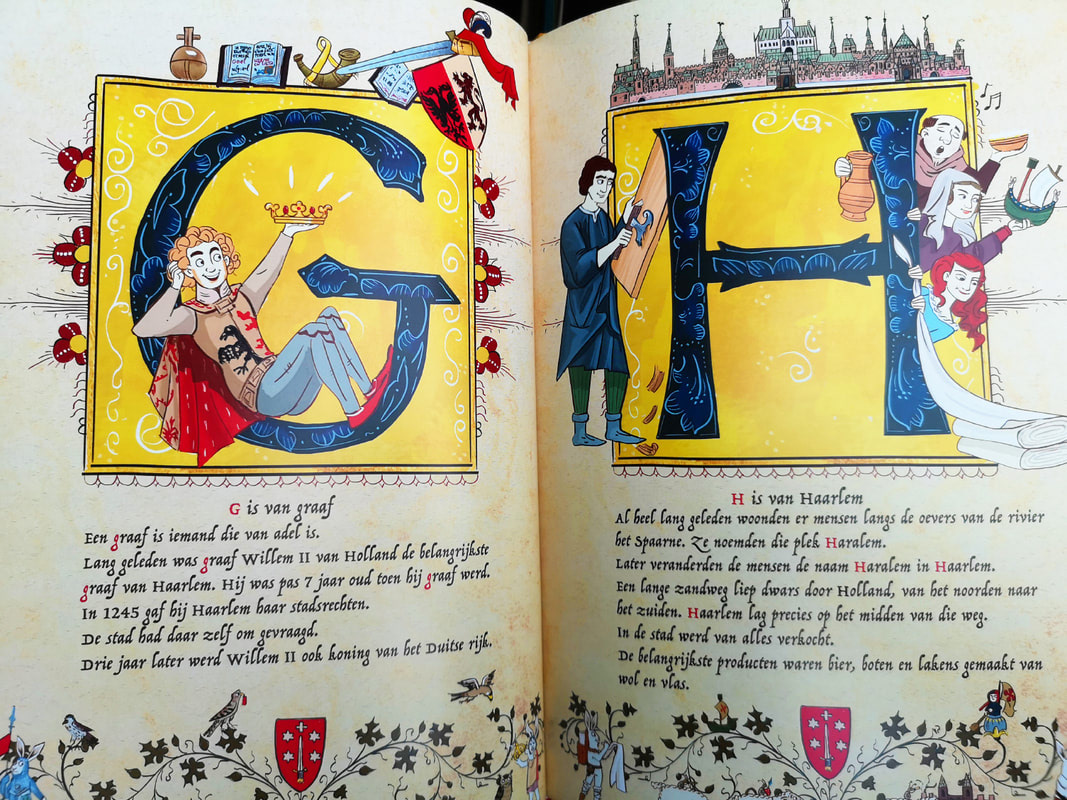 G is van graaf
Een graaf is iemand die van adel is.
Lang geleden was graaf Willem II van Holland de belangrijkste
graaf van Haarlem. Hij was pas 7 jaar oud toen hij graaf werd.
In 1245 gaf hij Haarlem haar stadsrechten.
De stad had daar zelf om gevraagd.
Drie jaar later werd Willem II ook koning van het Duitse rijk.
H is van Haarlem
Al heel lang geleden woonden er mensen langs de oevers van de rivier
het Spaarne. Ze noemden die plek Haralem.
Later veranderden de mensen de naam Haralem in Haarlem.
Een lange zandweg liep dwars door Holland, van het noorden naar
het zuiden. Haarlem lag precies op het midden van die weg.
In de stad werd van alles verkocht.
De belangrijkste producten waren bier, boten en lakens gemaakt van
wol en vlas.